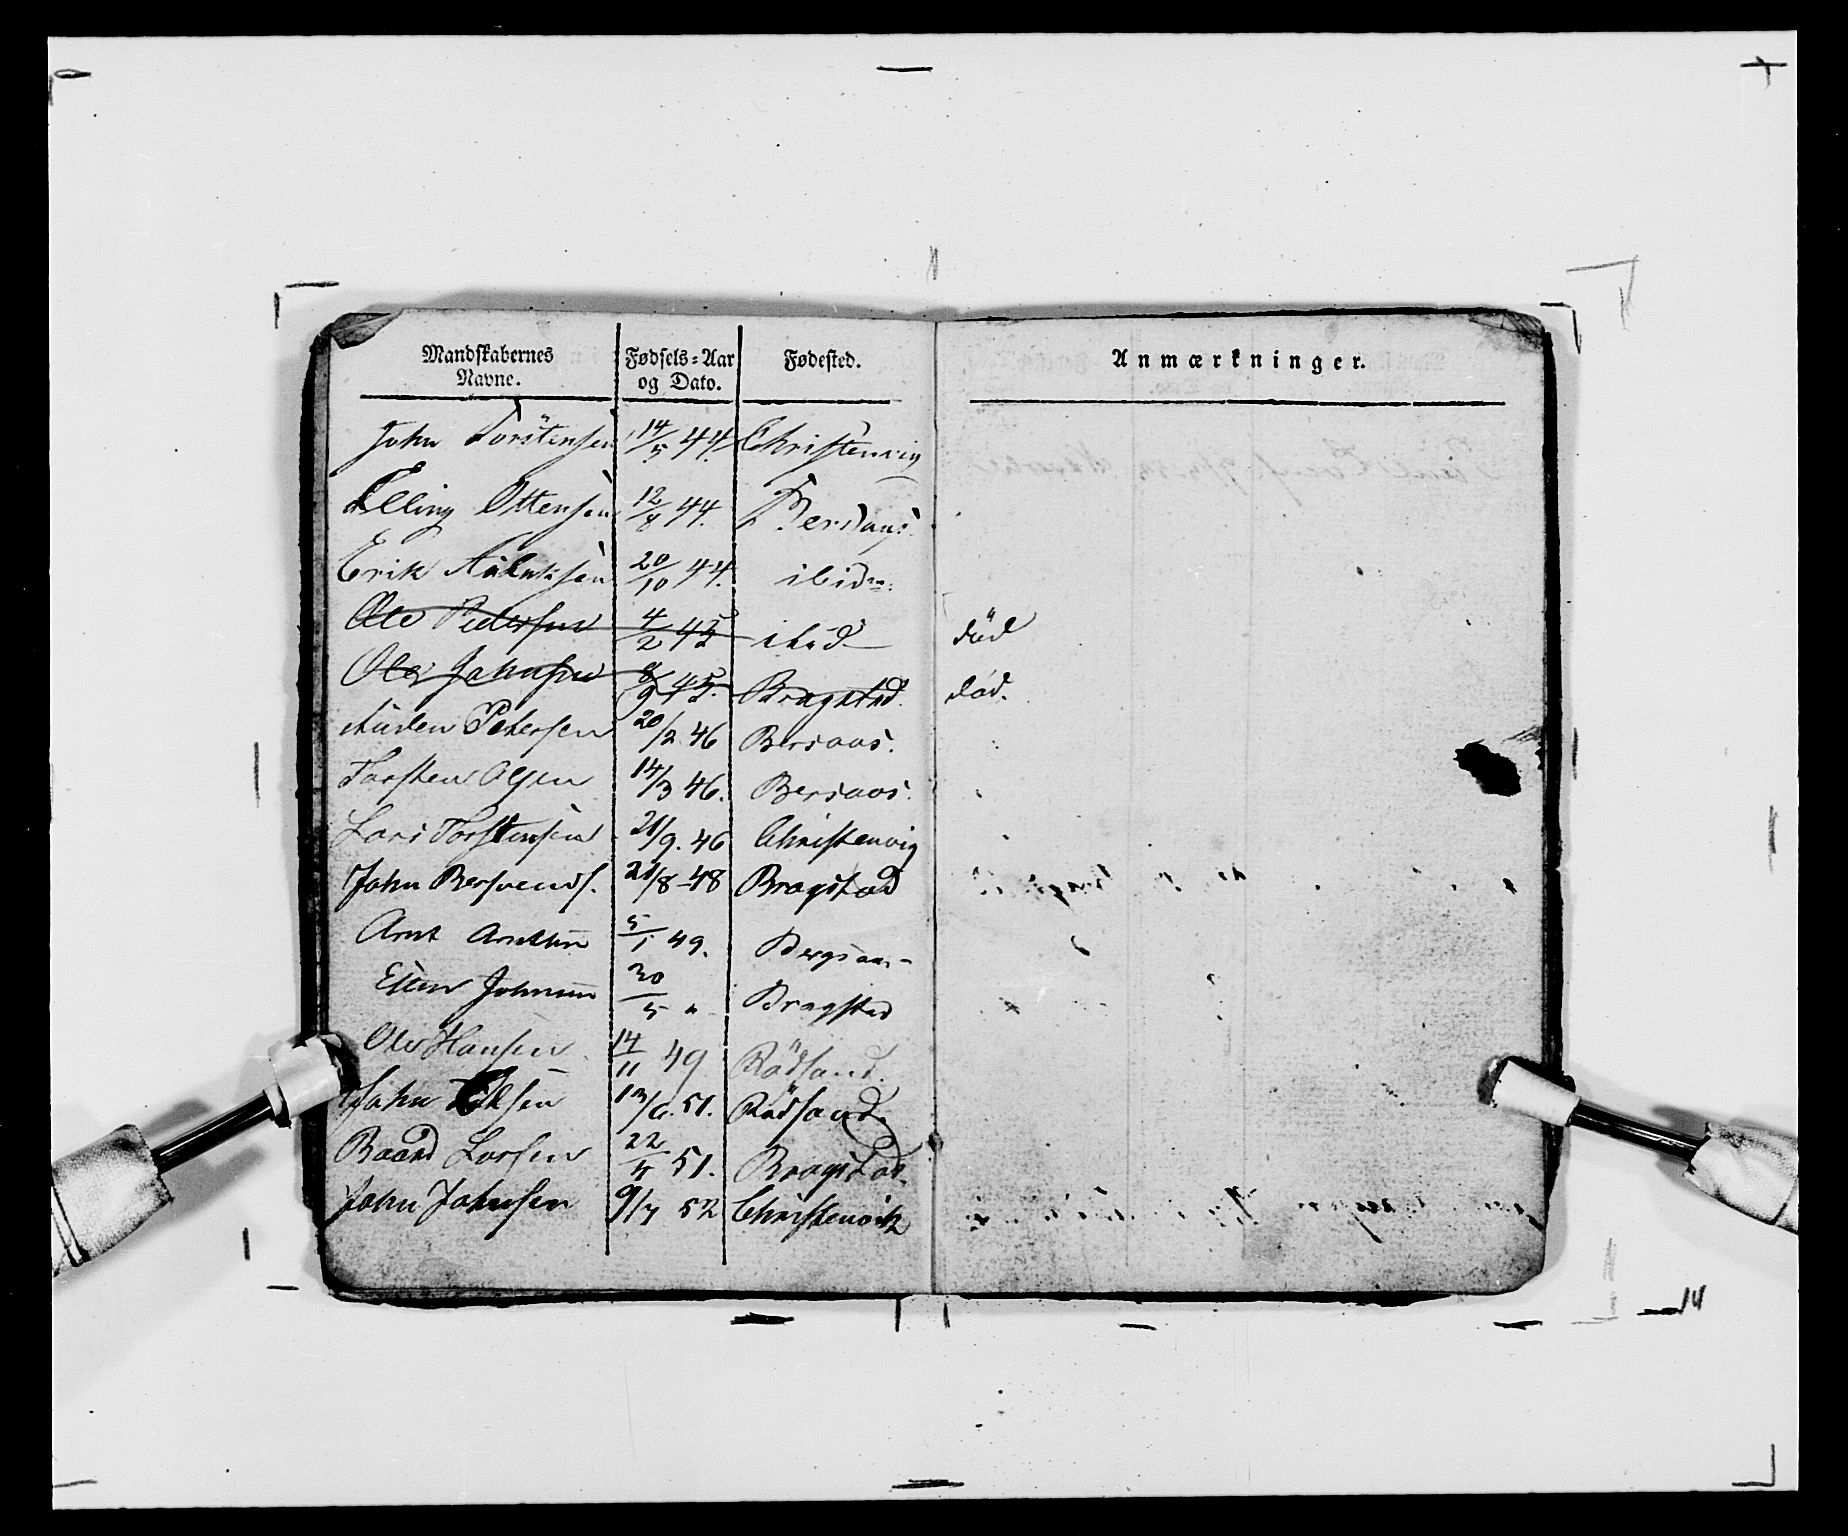 Mandskabernes Navne. Fødsels-Aar og Dato. Fødested. Anmærkninger.
John Torstensen 14/5 44. Christenvig
Elling Ottensen 12/8 44. Bersaas
Erik 20/10 44. ibidm:
Ole Pedersen 4/2 45 ibid
død
Ole Johnsen 8/9 45. Bragstad.
død.
Auden Petersen 20/2 46 Bersaas.
Torsten Olsen 14/3 46. Bersaas.
Lars Torstensen 21/9. 46 Christenvig
John Bersvends. 21/8 -48 Bragstad
Arnt Arntsen 5/1 49. Bergsaas
Esten Johnsen 30/5 " Bragstad
Ole Hansen 14/11 49 Rödsand.
John 13/6. 51. Rödsand.
Baard Larsen 22/4 51. Bragstad.
John Johnsen 9/7 52 Christenvik
14